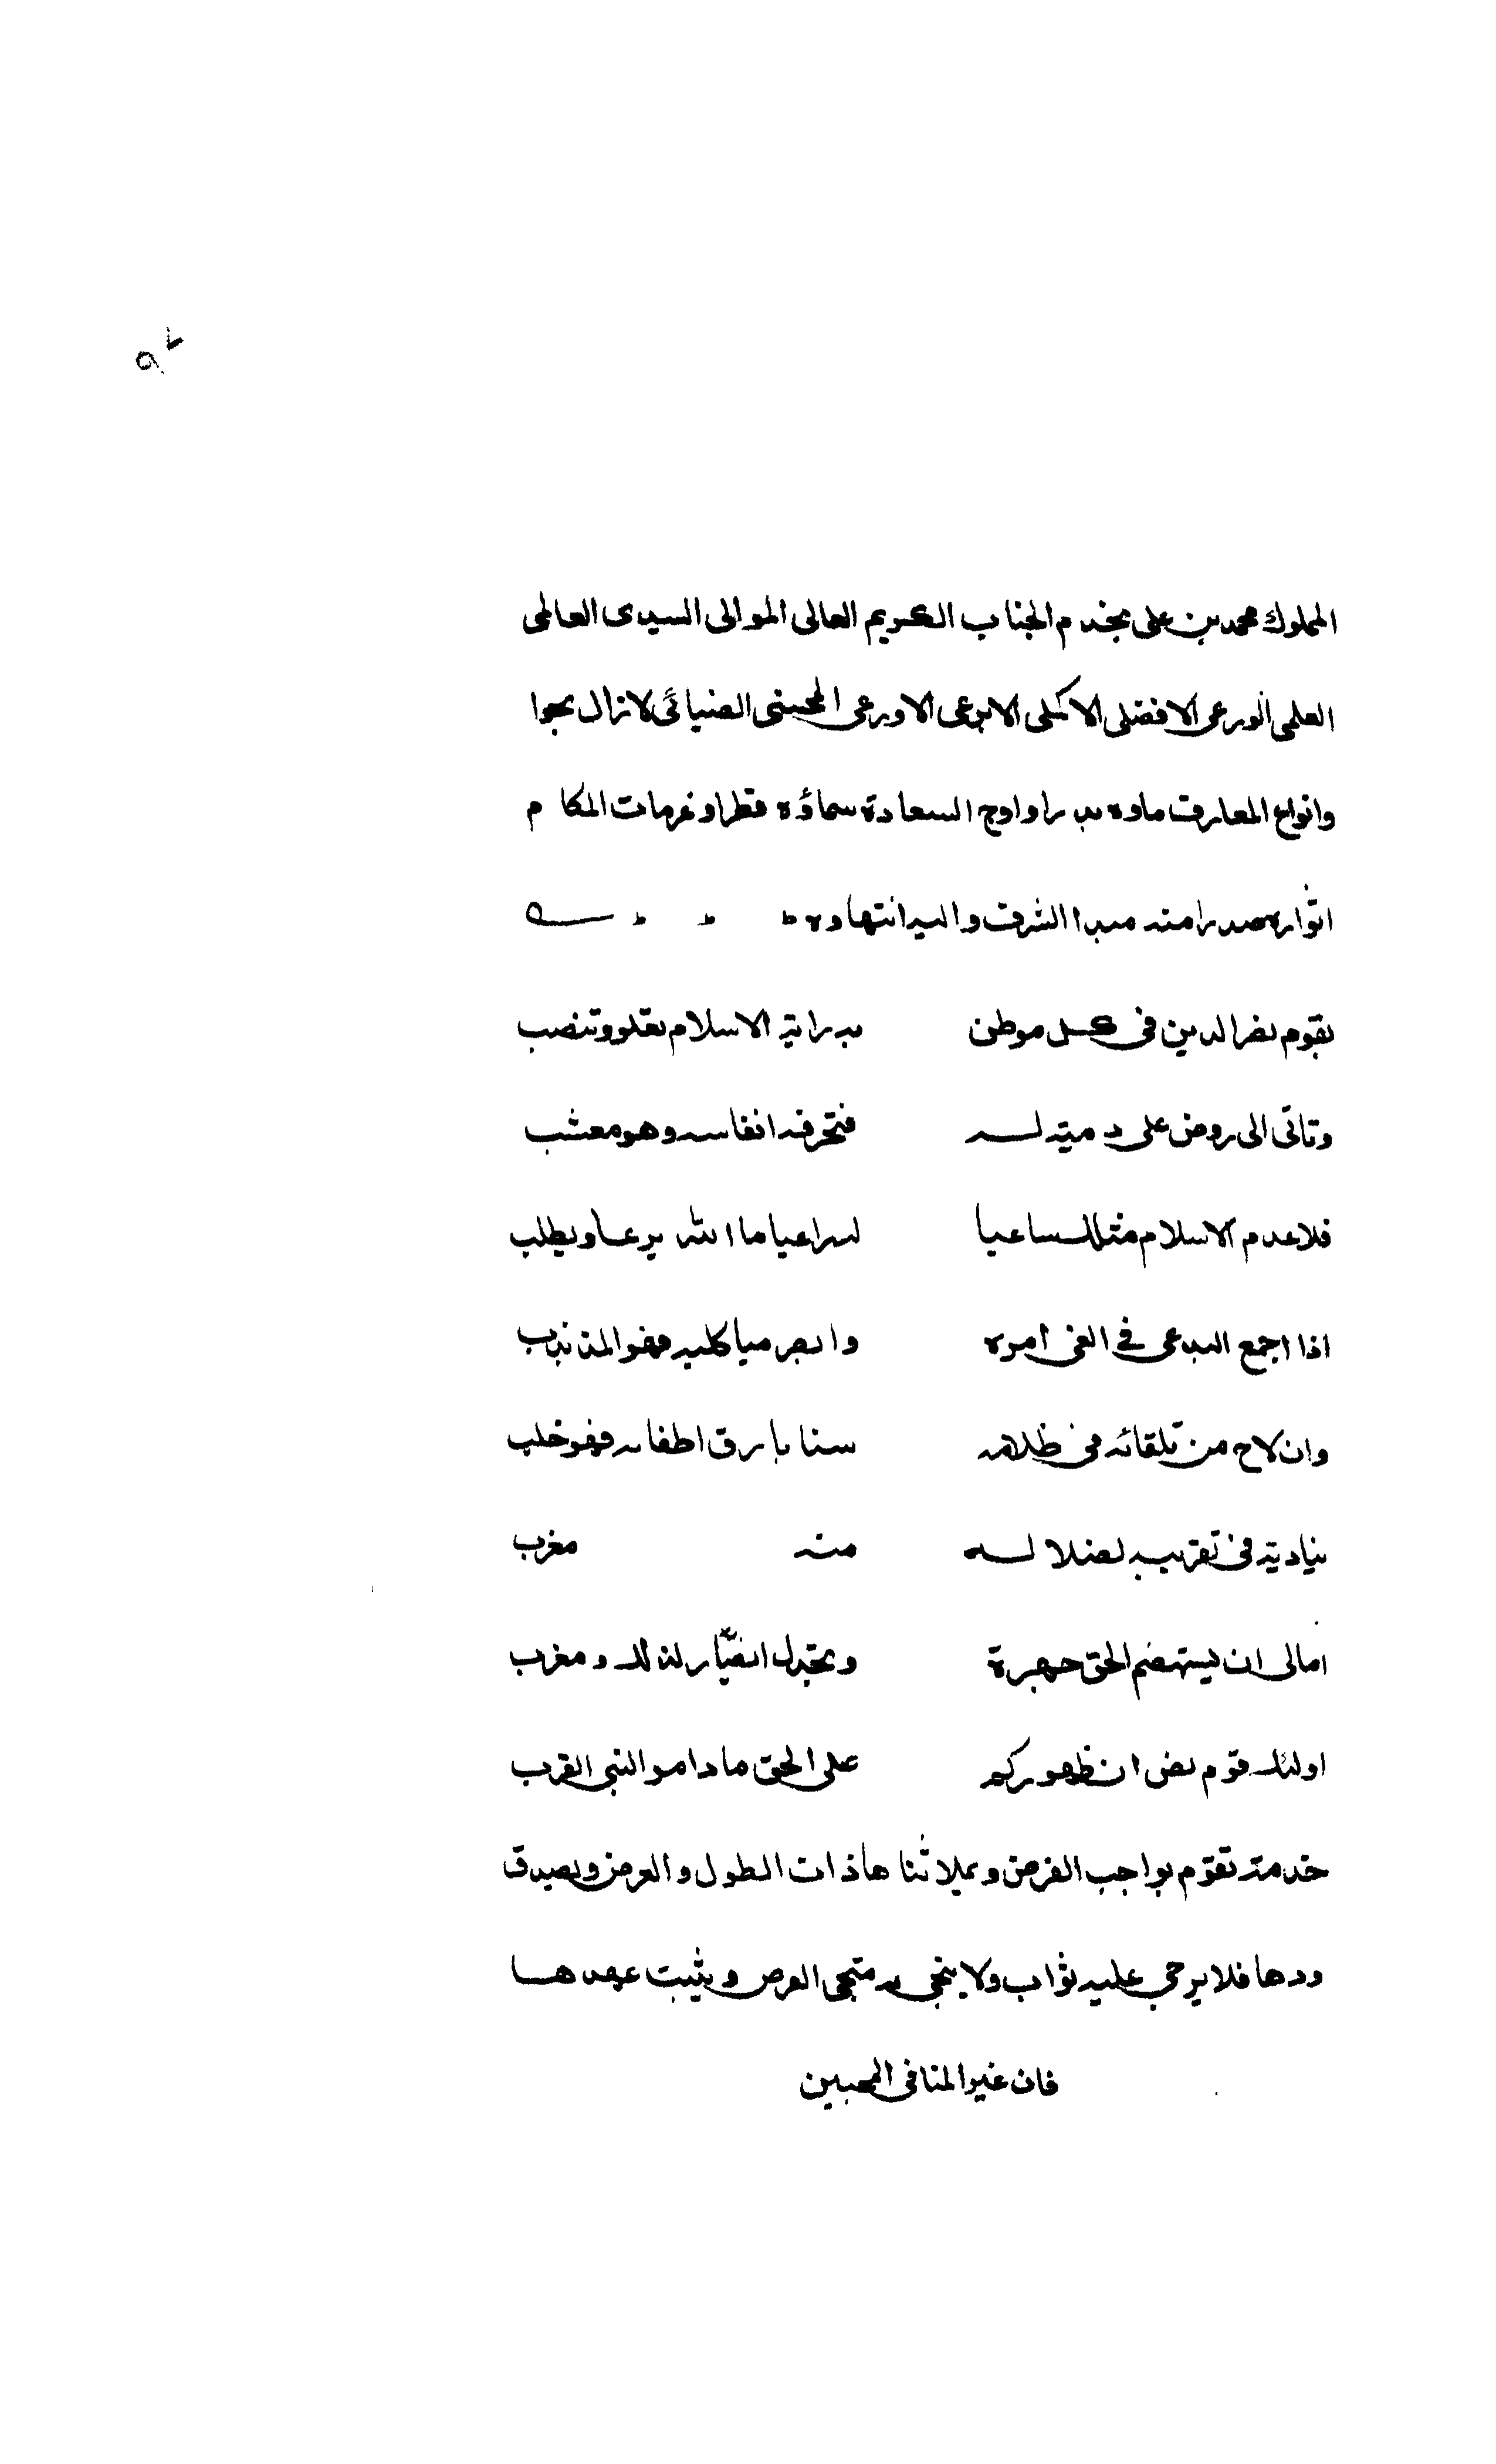 المملوك محمد بن على يخدم الجناب الكريم العالى الموالى السيدى العالمى
العلمى الورعى الافضلى الاكملى الابرعى الاورعى المحسنى الضيائى لا زال بحوا
وانواع المعارف ماوه بدرا واوج السعادة سماؤه قطرا وغرمات المكا م
اثواره صدرا منه مبدا الشرف واليه انتهاوه
يقوم بنصر الدين فى كل موطن به راية الاسلام تعلو وتنصب
وتاتى الى روض على دميته له فتحرقه انفاسه وهو معشب
فلا عدم الاسلام مثلك ساعيا له راعيا ما الله يرعا ويطلب
اذا اجمع البدعى في الغى امره وابصر مياكليه فهو المذبذب
وان لاح من تلقائه فى ظلامه سنا بارق اطفاه فهو خلب
يناديه فى تقريبه لضلاله منه مغرب
امالى ان يستهضم الحق جهرة ويخذل انصار لذلك ومغرب
اولئك قوم نص ان ظهوركم على الحق ما داموا النبى القرب
خدمة تقوم بواجب الفرض ويملا ثناها ذات الطول والعرض ويصدق
ودها فلا يرجى عليه ثواب ولا ينجى به متجى العرض ويثبت عهدها
فان غير المنافى المحبين